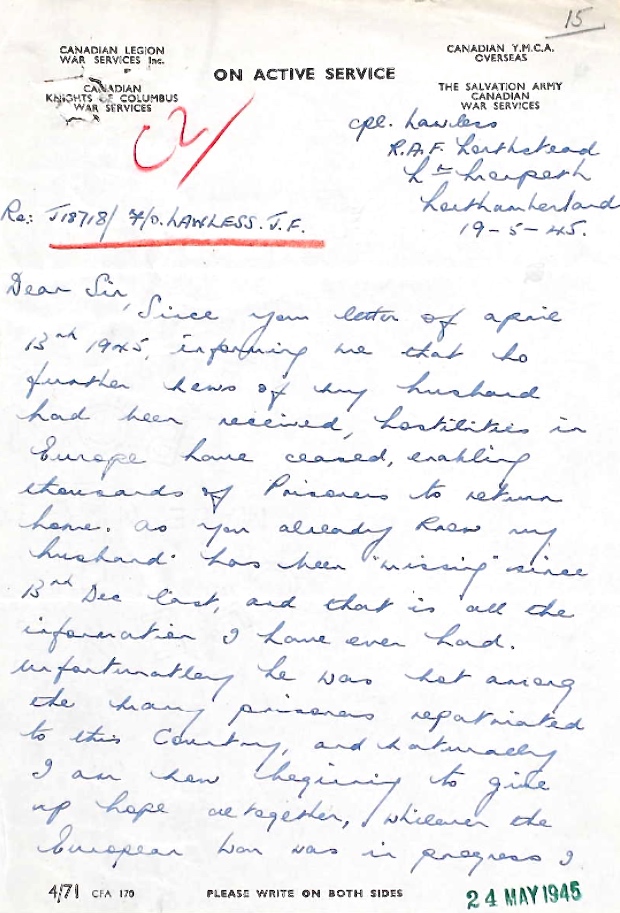 15
CANADIAN LEGION
WAR SERVICES Inc.
CANADIAN
KNIGHTS OF COLUMBUS
WAR SERVICES
ON ACTIVE SERVICE
CANADIAN Y.M.C.A.
OVERSEAS
THE SALVATION ARMY
CANADIAN
WAR SERVICES
cpl. Lawless
R.A.F.
Morpeth
Northumberland
19-5-45.
Re: J18718/ F/O. LAWLESS. J.F.
Dear Sir,
Since your letter of april
13th 1945, informing me that no
further news of my husband
had been received, hostilities in
Europe have ceased, enabling
thousands of Prisoners to return
home. As you already know my
husband has been "missing" since
13th Dec last, and that is all the
information I have ever had.
Unfortunatley he was not among
the many prisoners repatriated
to this Country, and naturally
I am now begining to give
up hope altogether, whilever the
European War was in progress I
4/71 CFA 170
PLEASE WRITE ON BOTH SIDES
24 MAY 1945